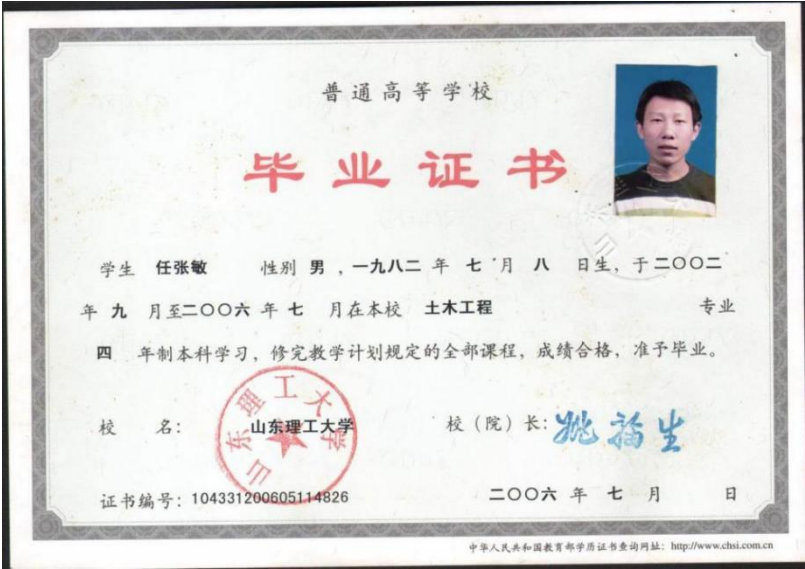 普通高等学校
毕业证书
学生 任张敏 性别 男 ，一九八二 年 七 月 八 日生，于 二〇〇二
年 九 月至二〇〇六 年 七 月在本校 土木工程 专业
四 年制本科学习，修完教学计划规定的全部课程，成绩合格，准予毕业。
校 名： 山东理工大学 校（院）长：姚福生
山东理工大学
证书编号：104331200605114826 二〇〇六 年 七 月 日
中华人民共和国教育部学历证书查询网址：http://www.chsi.com.cn